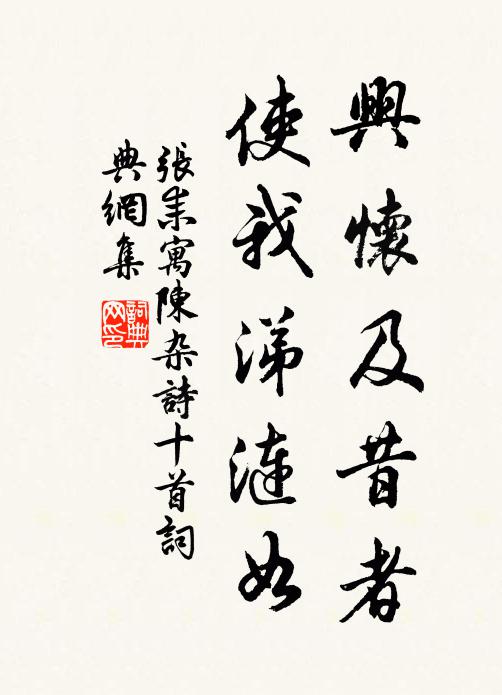 興懷及昔者
使我涕漣如
張耒寓陳杂詩十首詞
典網集
詞典
网印